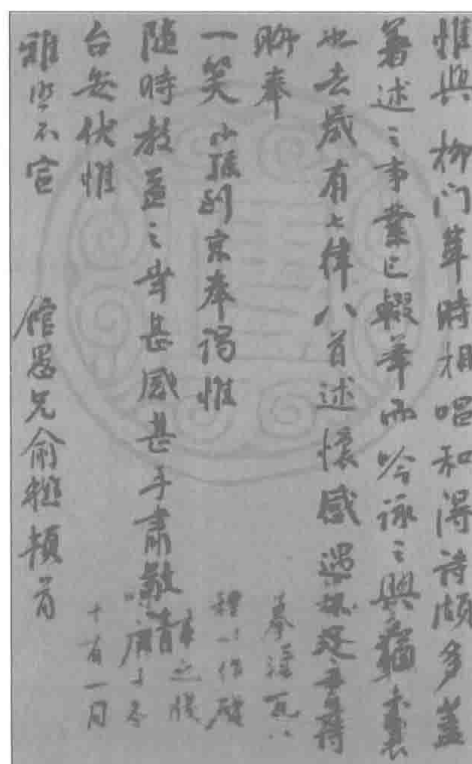 惟與 柳門輩時相唱和得詩頗多蓋
著述之事業已輟筆而吟詠之興猶未衰
也去歲有七律八首述懷感遇
聊奉
一笑 小孫到京奉謁惟
隨時教益之幸甚感甚手肅敬請
台安伏惟
雅鑒不宣 館愚兄俞樾頓首
摹漢瓦以
種以作
十有一月